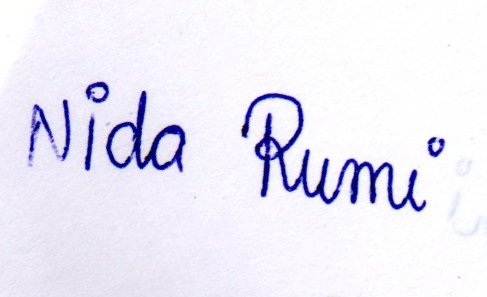 Nida Rumi